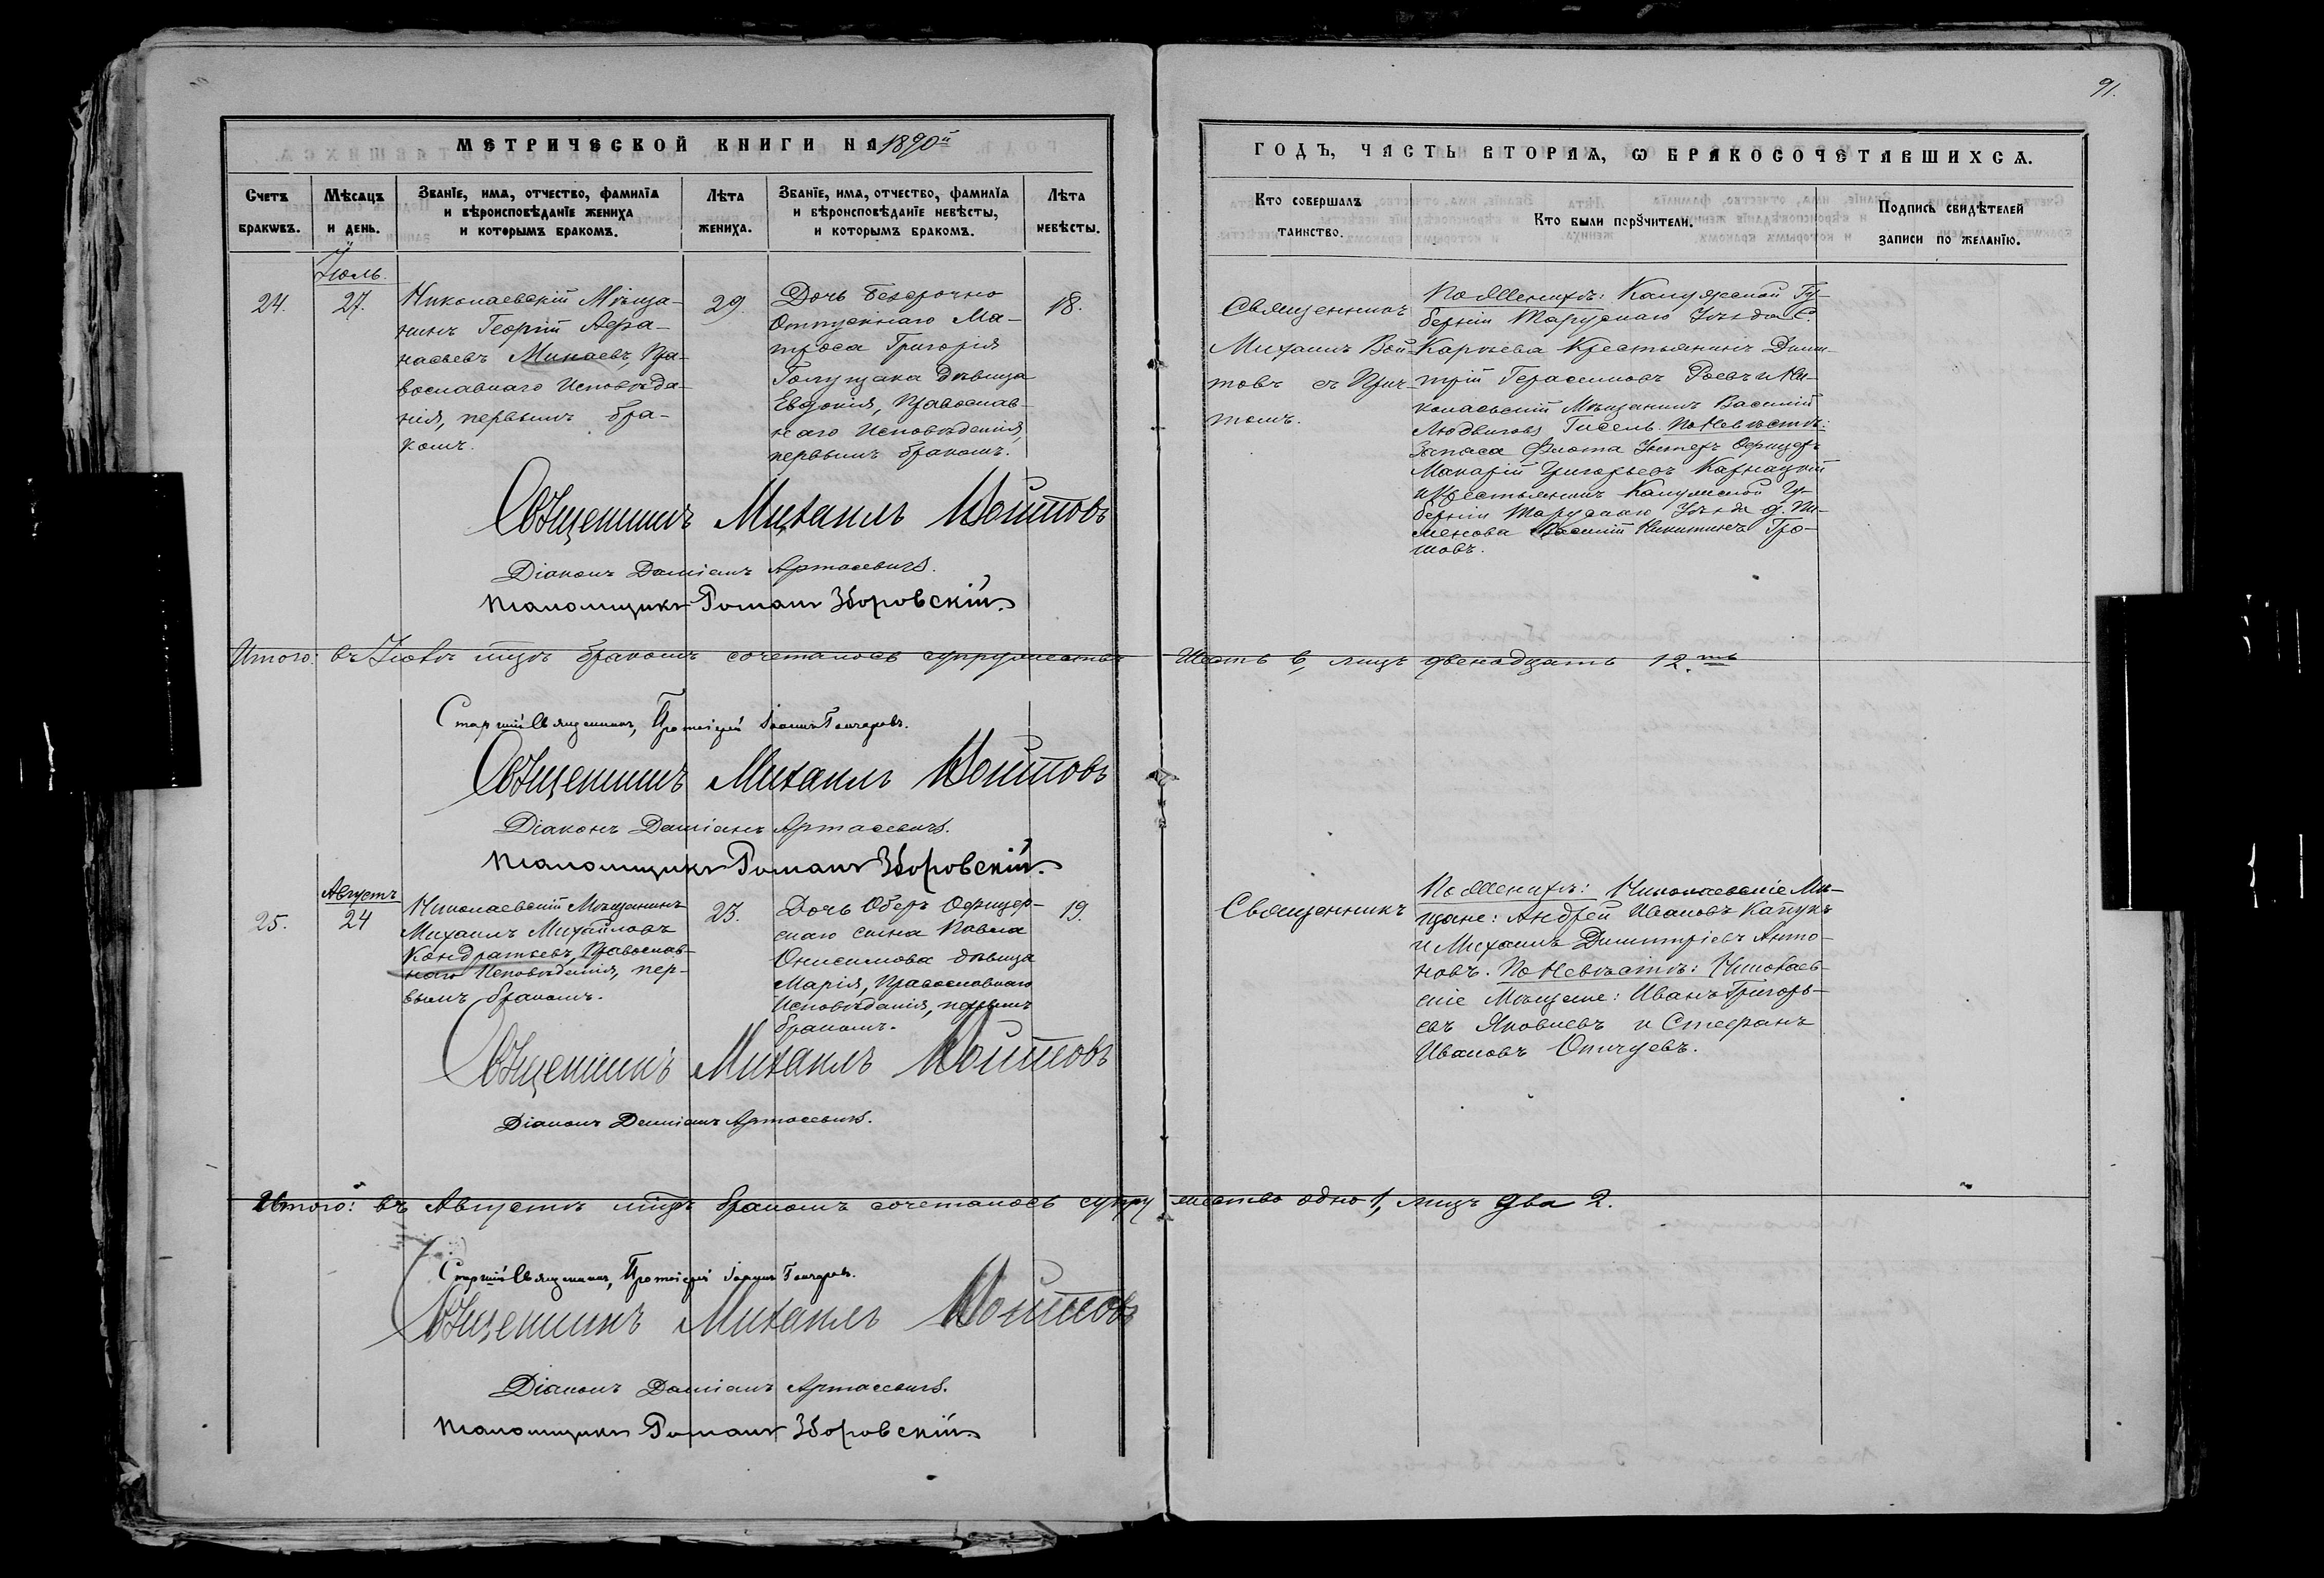 91.
МЕТРИЧЕСКОЙ КНИГИ НА 1890й
ГОДЪ, ЧАСТЬ ВТОРАЯ, Ѡ БРАКОСОЧЕТАВШИХСѦ.
Счетъ
браковъ.
Мѣсяцъ
и день.
Званіе, имя, отчество, фамилія
и вѣроисповѣданіе жениха
и которымъ бракомъ.
Лѣта
жениха.
Званіе, имя, отчество, фамилія
и вѣроисповѣданіе невѣсты,
и которымъ бракомъ.
Лѣта
невѣсты.
Кто совершалъ
таинство.
Кто были порꙋчители.
Подпись свидѣтелей
записи по желанію.
24.
Іюль.
27.
Николаевскій Мѣща-
нинъ Георгій Афа-
насьевъ Минаевъ, Пра-
вославнаго Исповѣда-
нія, первымъ бра-
комъ.
29.
Дочь безсрочно
Отпускнаго Ма-
троса Григорія
Голущака дѣвица
Евдокія, Православ-
наго Исповѣданія,
первымъ бракомъ.
18.
Священникъ
Михаилъ Вой-
товъ съ Прич-
томъ.
По Женихѣ: Калужской Гу-
берніи Тарускаго Уѣзда С.
Карпева Крестьянинъ Дими-
трій Герасимовъ Роевъ и Ни-
колаевскій Мѣщанинъ Василій
Людвиговъ Гисель. По Невѣстѣ:
Запаса Флота Унтеръ Офицеръ
Макарій Григорьевъ Карнацкій
и Крестьянинъ Калужской Гу-
берніи Тарускаго Уѣзда д. Пи-
менова Василій Никитинъ Гро-
мовъ.
Священникъ Михаилъ Войтовъ
Діаконъ Даміанъ Артасевичъ.
Псаломщикъ Романъ Зборовскій.
Итого: въ Іюлѣ мцѣ бракомъ сочеталось супружествъ шесть 6, лицъ двенадцать 12.ть
Старшій Священникъ, Протоіерей Іоаннъ Гончаровъ.
Священникъ Михаилъ Войтовъ
Діаконъ Даміанъ Артасевичъ.
Псаломщикъ Романъ Зборовскій.
25.
Августъ
24
Николаевскій Мѣщанинъ
Михаилъ Михайловъ
Кондратьевъ, Православ-
наго Исповѣданія, пер-
вымъ бракомъ.
23.
Дочь Оберъ Офицер-
скаго сына Павла
Онисимова дѣвица
Марія, Православнаго
Исповѣданія, первымъ
бракомъ.
19.
Священникъ
По Женихѣ: Николаевскіе Мѣ-
щане: Андрей Ивановъ Капукъ
и Михаилъ Димитріевъ Анто-
новъ. По Невѣстѣ: Николаев-
скіе Мѣщане: Иванъ Григорь-
евъ Яковлевъ и Стефанъ
Ивановъ Опичуевъ.
Священникъ Михаилъ Войтовъ
Діаконъ Даміанъ Артасевичъ.
Итого: въ Августѣ мцѣ бракомъ сочеталось супружество одно 1, лицъ два 2.
Старшій Священникъ, Протоіерей Іоаннъ Гончаровъ.
Священникъ Михаилъ Войтовъ
Діаконъ Даміанъ Артасевичъ.
Псаломщикъ Романъ Зборовскій.